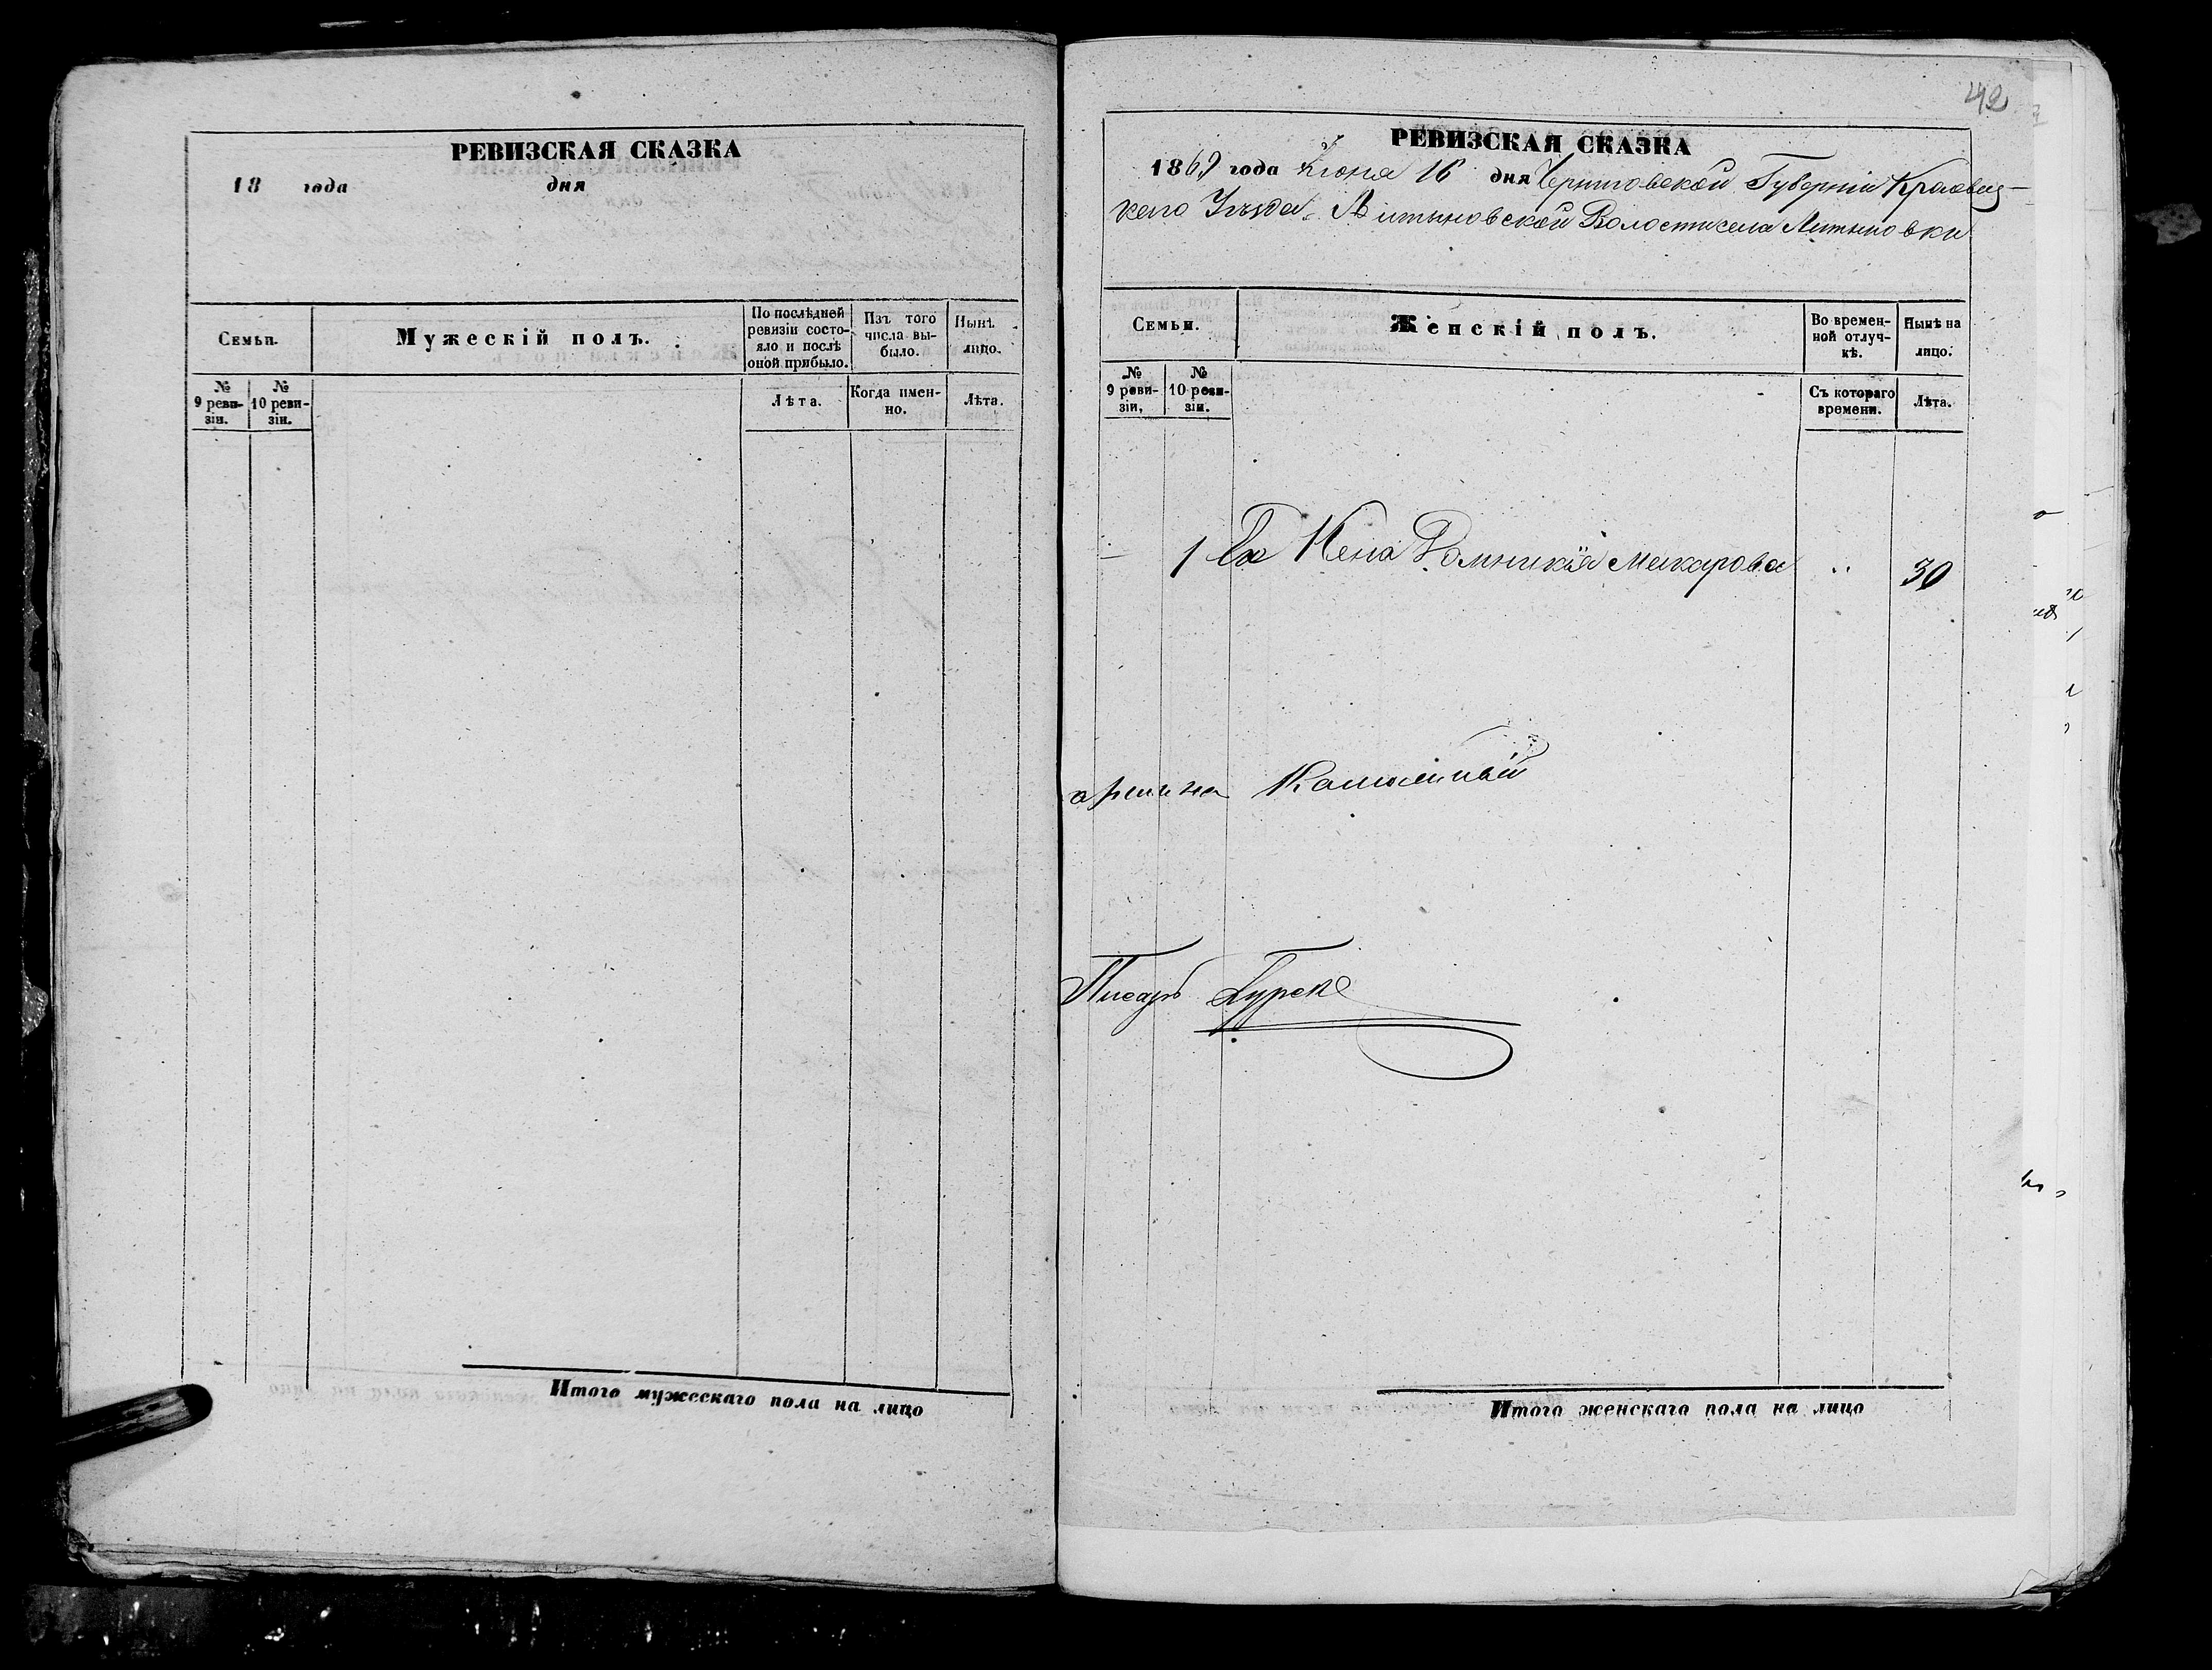 РЕВИЗСКАЯ СКАЗКА
18 года дня
Семьи.
Мужескій полъ.
По послѣдней ревизіи состояло и послѣ оной прибыло.
Изъ того числа выбыло.
Нынѣ лицо.
№ 9 ревизіи.
№ 10 ревизіи.
Лѣта.
Когда именно.
Лѣта.
Итого мужескаго пола на лицо
42
РЕВИЗСКАЯ СКАЗКА
1869 года Іюня 16 дня Черниговской Губерніи Кролевец-
каго Уѣзда, Литвиновской Волости села Литвиновки
Семьи.
Женскій полъ.
Во временной отлучкѣ.
Нынѣ на лицо.
№ 9 ревизіи.
№ 10 ревизіи.
Съ котораго времени.
Лѣта.
1 Его Жена Домникія Макарова 30
Писарь
Итого женскаго пола на лицо